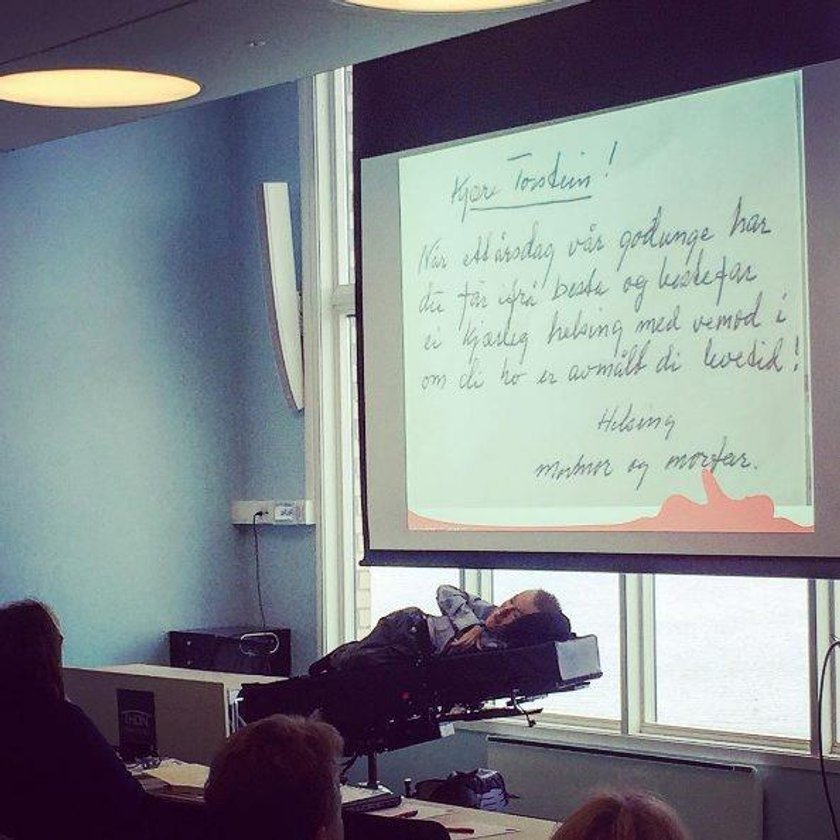 Kjære Torstein!
Når eitt årsdag vår godunge har
du får ifrå beste og bestefar
ei kjærleg helsing med vemod i
om di ho er avmålt di levetid!
Helsing
mormor og morfar.
THON